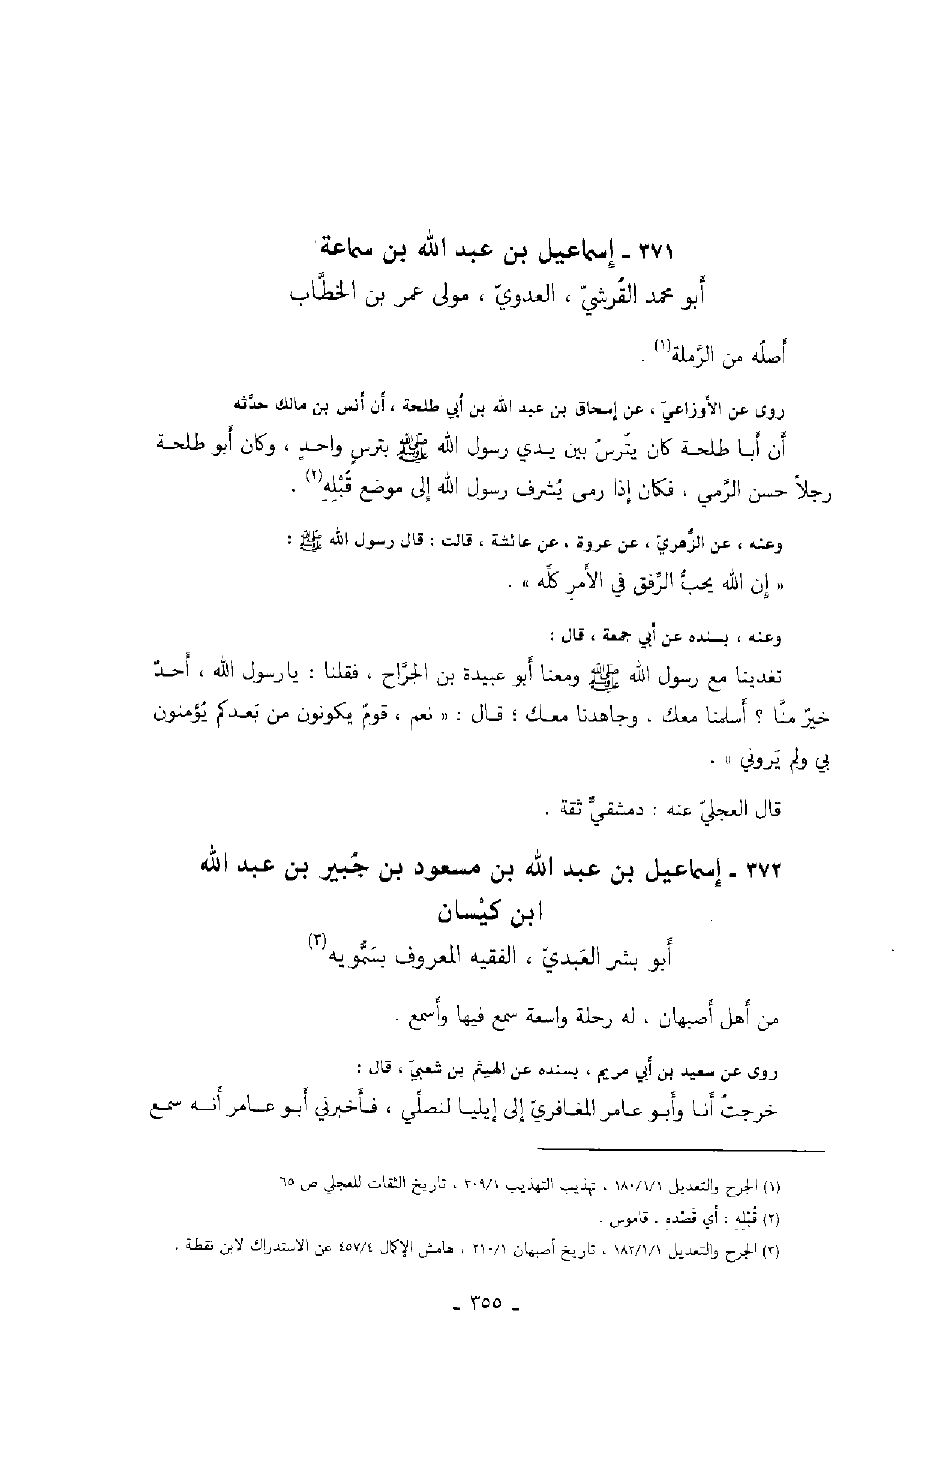 ٣٧١ ـ إسماعيل بن عبد الله بن سماعة
أبو محمد القُرشيّ ، العدويّ ، مولى عمر بن الخطَّاب
أصلُه من الرَّملة(١) .
روى عن الأوزاعيّ ، عن إسحاق بن عبد الله بن أبي طلحة ، أن أنس بن مالك حدَّثه
أن أبا طلحة كان يتَّرسُ بين يدي رسول الله ﷺ بترسٍ واحدٍ ، وكان أبو طلحة
رجلاً حسن الرَّمي ، فكان إذا رمى يُشرف رسول الله إلى موضع قُبْلِهِ(٢) .
وعنه ، عن الزُّهريّ ، عن عروة ، عن عائشة ، قالت : قال رسول الله ﷺ :
« إن الله يحبُّ الرِّفق في الأمرِ كلِّه » .
وعنه ، بسنده عن أبي جمعة ، قال :
تغدينا مع رسول الله ﷺ ومعنا أبو عبيدة بن الجرَّاح ، فقلنا : يا رسول الله ، أحدٌ
خيرٌ منَّا ؟ أسلمنا معك ، وجاهدنا معك ؛ قال : « نعم ، قومٌ يكونون من بَعدكم يُؤمنون
بي ولم يَروني » .
قال العجليّ عنه : دمشقيٌّ ثقة .
٣٧٢ ـ إسماعيل بن عبد الله بن مسعود بن جُبير بن عبد الله
ابن كَيْسان
أبو بشر العَبديّ ، الفقيه المعروف بسَمُّويه(٣)
من أهل أصبهان ، له رحلة واسعة سمع فيها وأَسمع .
روى عن سعيد بن أبي مريم ، بسنده عن الهيثم بن شعبيّ ، قال :
خرجتُ أنا وأبو عامر المغافريّ إلى إيليا لنصلِّي ، فأخبرني أبو عامر أنه سمع
(١) الجرح والتعديل ١٨٠/١/١ ، تهذيب التهذيب ٣٠٩/١ ، تاريخ الثقات للعجلي ص ٦٥
(٢) قُبْلِهِ : أي قَصْده . قاموس .
(٣) الجرح والتعديل ١٨٢/١/١ ، تاريخ أصبهان ٢١٠/١ ، هامش الإكمال ٤٥٧/٤ عن الاستدراك لابن نقطة .
ـ ٣٥٥ ـ